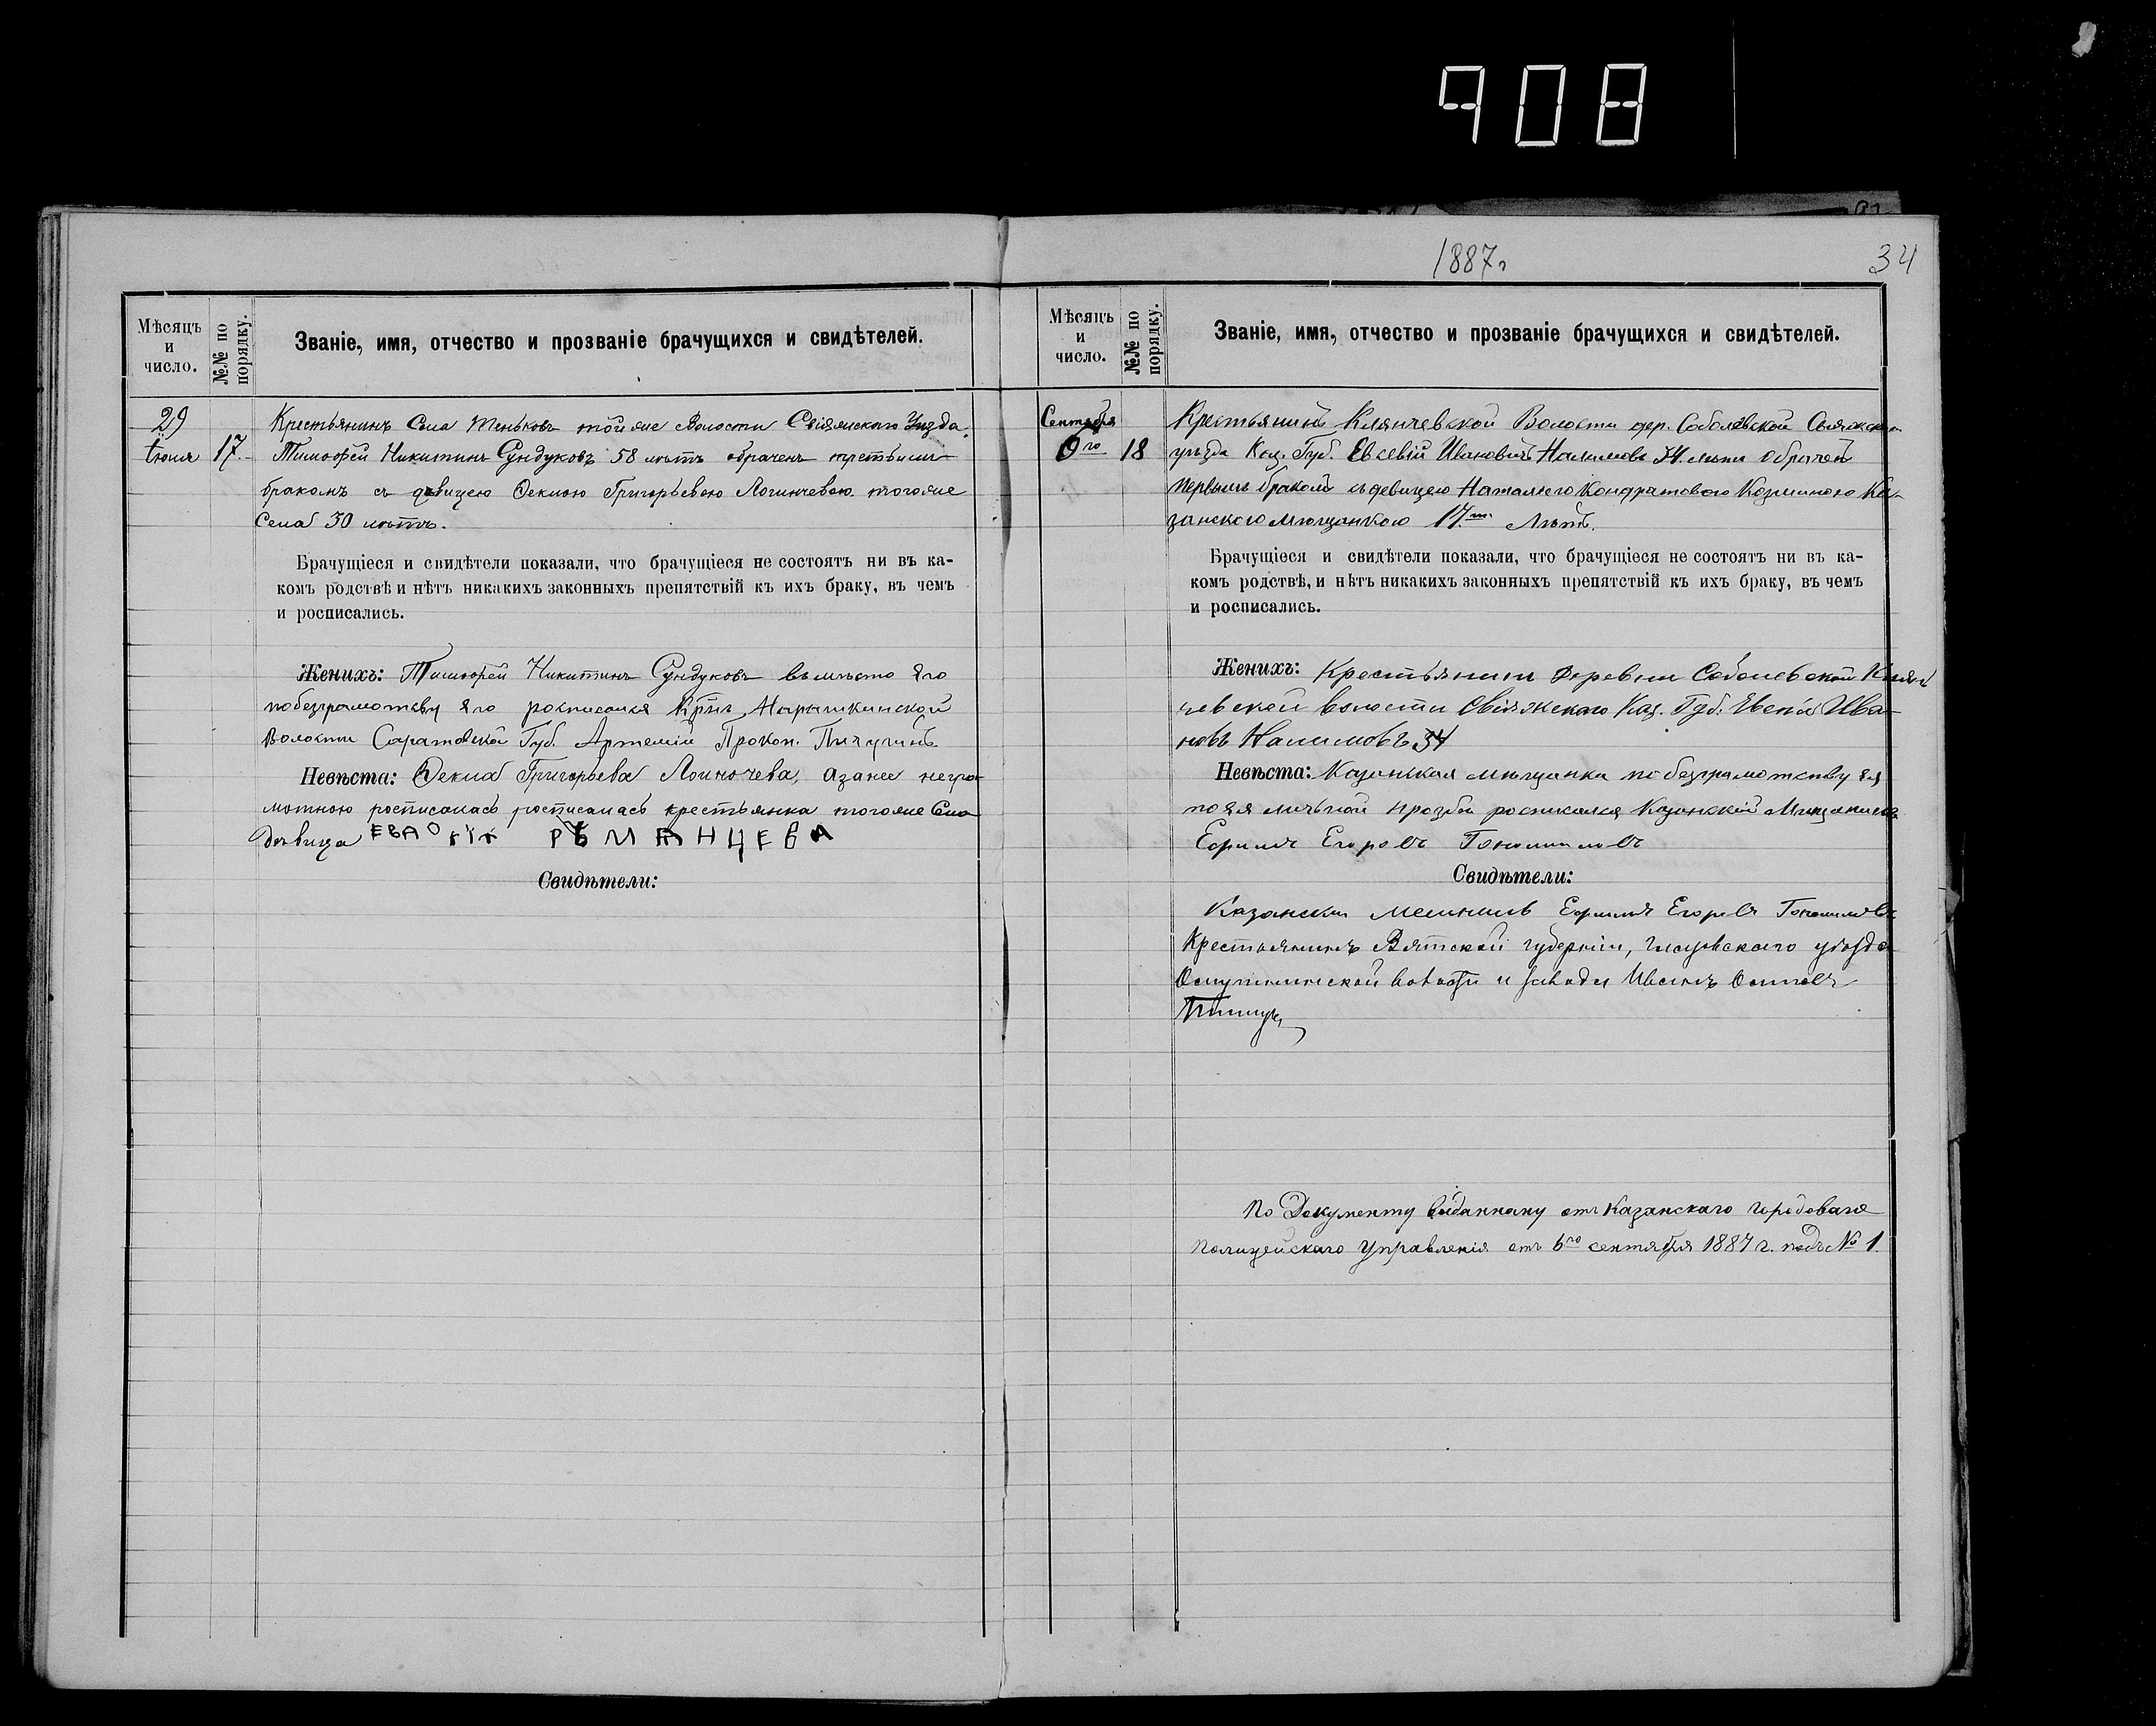 908
1887г
34
Мѣсяцъ и число.
№№ по порядку.
Званіе, имя, отчество и прозваніе брачущихся и свидѣтелей.
29 Іюня
17.
Крестьянинъ Села Теньковъ той же Волости Свіяжскаго Уѣзда
Тимофей Никитинъ Сундуковъ 58 лѣтъ обраченъ третьимъ
бракомъ съ дѣвицею Феклою Григорьевою Логинчевою тогоже
Села 30 лѣтъ.
Брачущіеся и свидѣтели показали, что брачущіеся не состоятъ ни въ ка-
комъ родствѣ и нѣтъ никакихъ законныхъ препятствій къ ихъ браку, въ чемъ
и росписались.
Женихъ: Тимофей Никитинъ Сундуковъ вмѣсто Его
побезграмотству Его росписался Крнъ Нарышкинской
Волости Саратовской Губ. Артемій Прокоп. Пичугинъ
Невѣста: Фекла Григорьева азанее негра-
мотною росписалась росписалась крестьянка тогоже Села
дѣвица ЕВАОКІЯ РЪМАНЦЕВА
Свидѣтели:
Мѣсяцъ и число.
№№ по порядку.
Званіе, имя, отчество и прозваніе брачущихся и свидѣтелей.
Сентября
9го
18
Крестьянинъ Клянчевской Волости дер. Соболевской
уѣзда Каз. Губ. Евсевій Ивановичъ Налимовъ 34 лѣтъ обрачен
первымъ бракомъ съ девицею Наталіею Кондратовою Козминою Ка-
занскою Мѣщанкою 17ти Лѣтъ.
Брачущіеся и свидѣтели показали, что брачущіеся не состоятъ ни въ ка-
комъ родствѣ, и нѣтъ никакихъ законныхъ препятствій къ ихъ браку, въ чемъ
и росписались.
Женихъ: Крестьянинъ Деревни Соболевской Клян
чевской волости Свіяжскаго Каз. Губ. Ива-
новъ Налимовъ 34
Невѣста: Казанская мѣщанка по безграмотству ея
по ея личной прозбы росписался Казанскій Мѣщанинъ
Ефимъ Егоровъ
Свидѣтели:
Ефимъ Егоровъ
Крестьянинъ Вятской губерніи, Глазовскаго уѣзда
Омутнинской волости и завода Иванъ
По Документу выданному отъ Казанскаго городоваго
полицейскаго Управленія отъ 6го сентября 1887 г. подъ № 1.